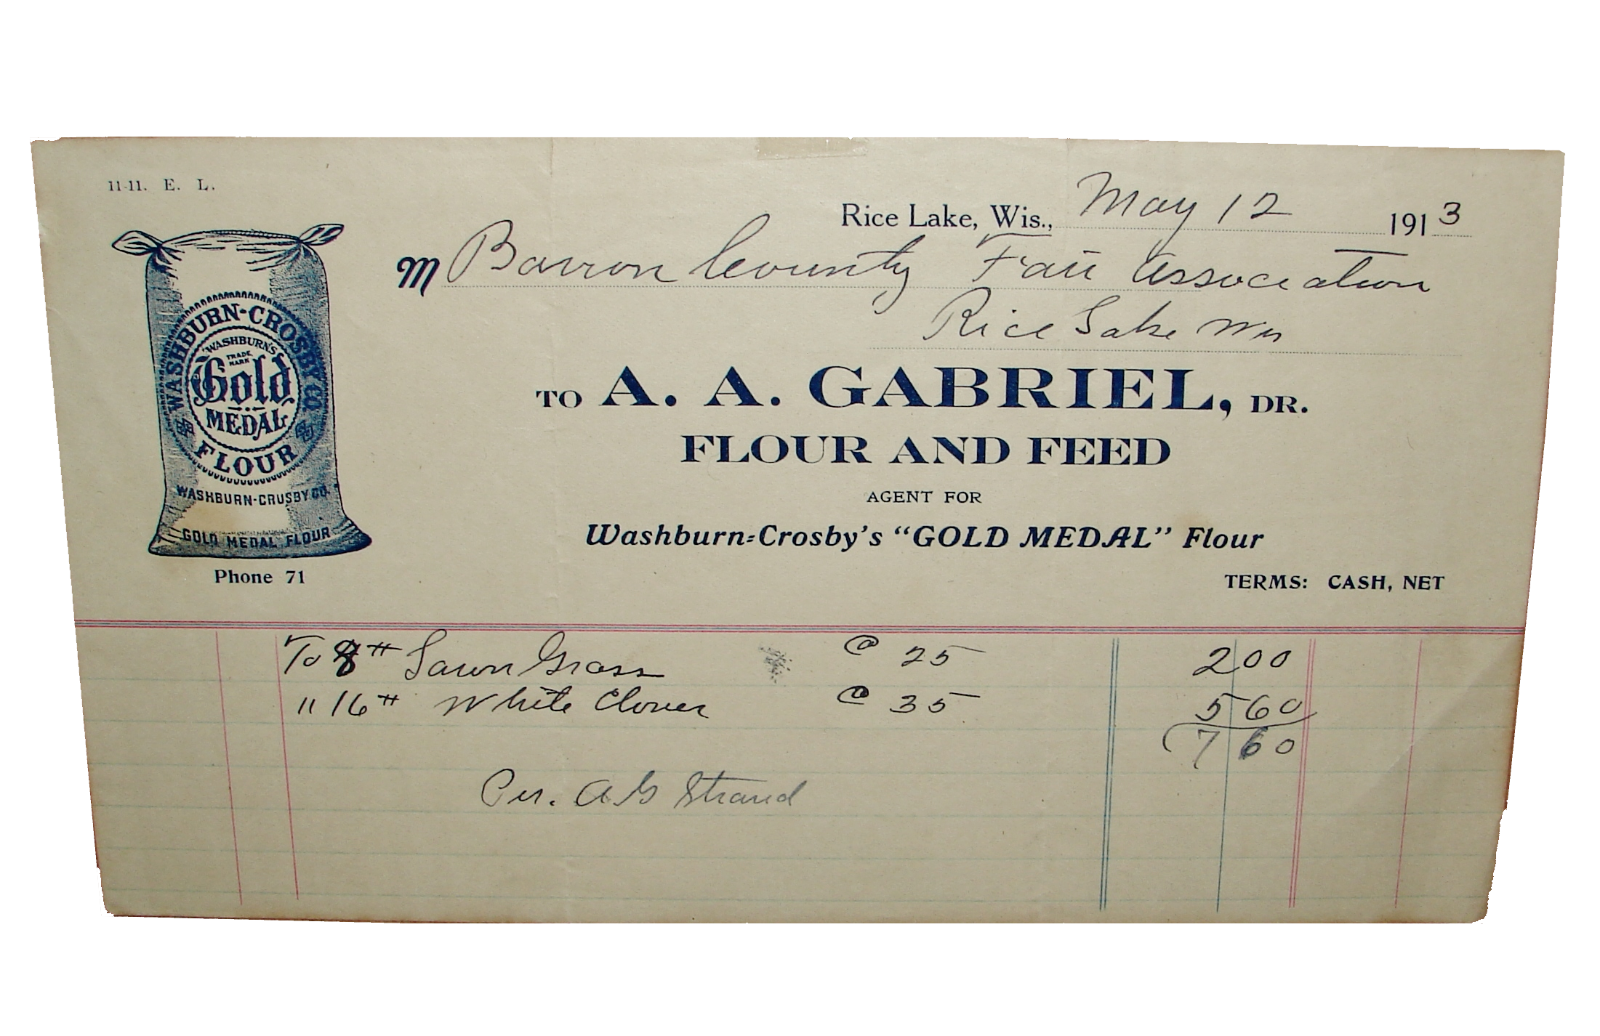 11-11. E. L.
Rice Lake, Wis., May 12 1913
M Barron County Fair Association
Rice Lake Wis
WASHBURN-CROSBY CO.
WASHBURN'S
TRADE MARK
Gold
MEDAL
FLOUR
WASHBURN-CROSBY CO.
GOLD MEDAL FLOUR
Phone 71
TO A. A. GABRIEL, DR.
FLOUR AND FEED
AGENT FOR
Washburn-Crosby's "GOLD MEDAL" Flour
TERMS: CASH, NET
To 8# Lawn Grass @ 25 2 00
" 16# White Clover @ 35 5 60
7 60
Per. A G Strand